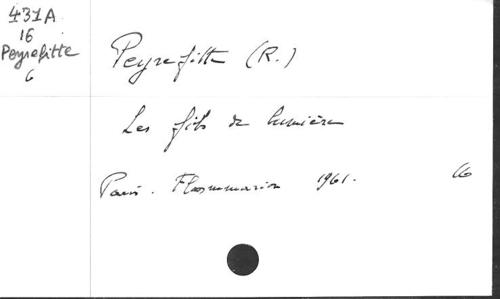 431A
16
Peyrefitte
6
Peyrefitte (R.)
Les fils de lumière
Paris. Flammarion 1961. 66